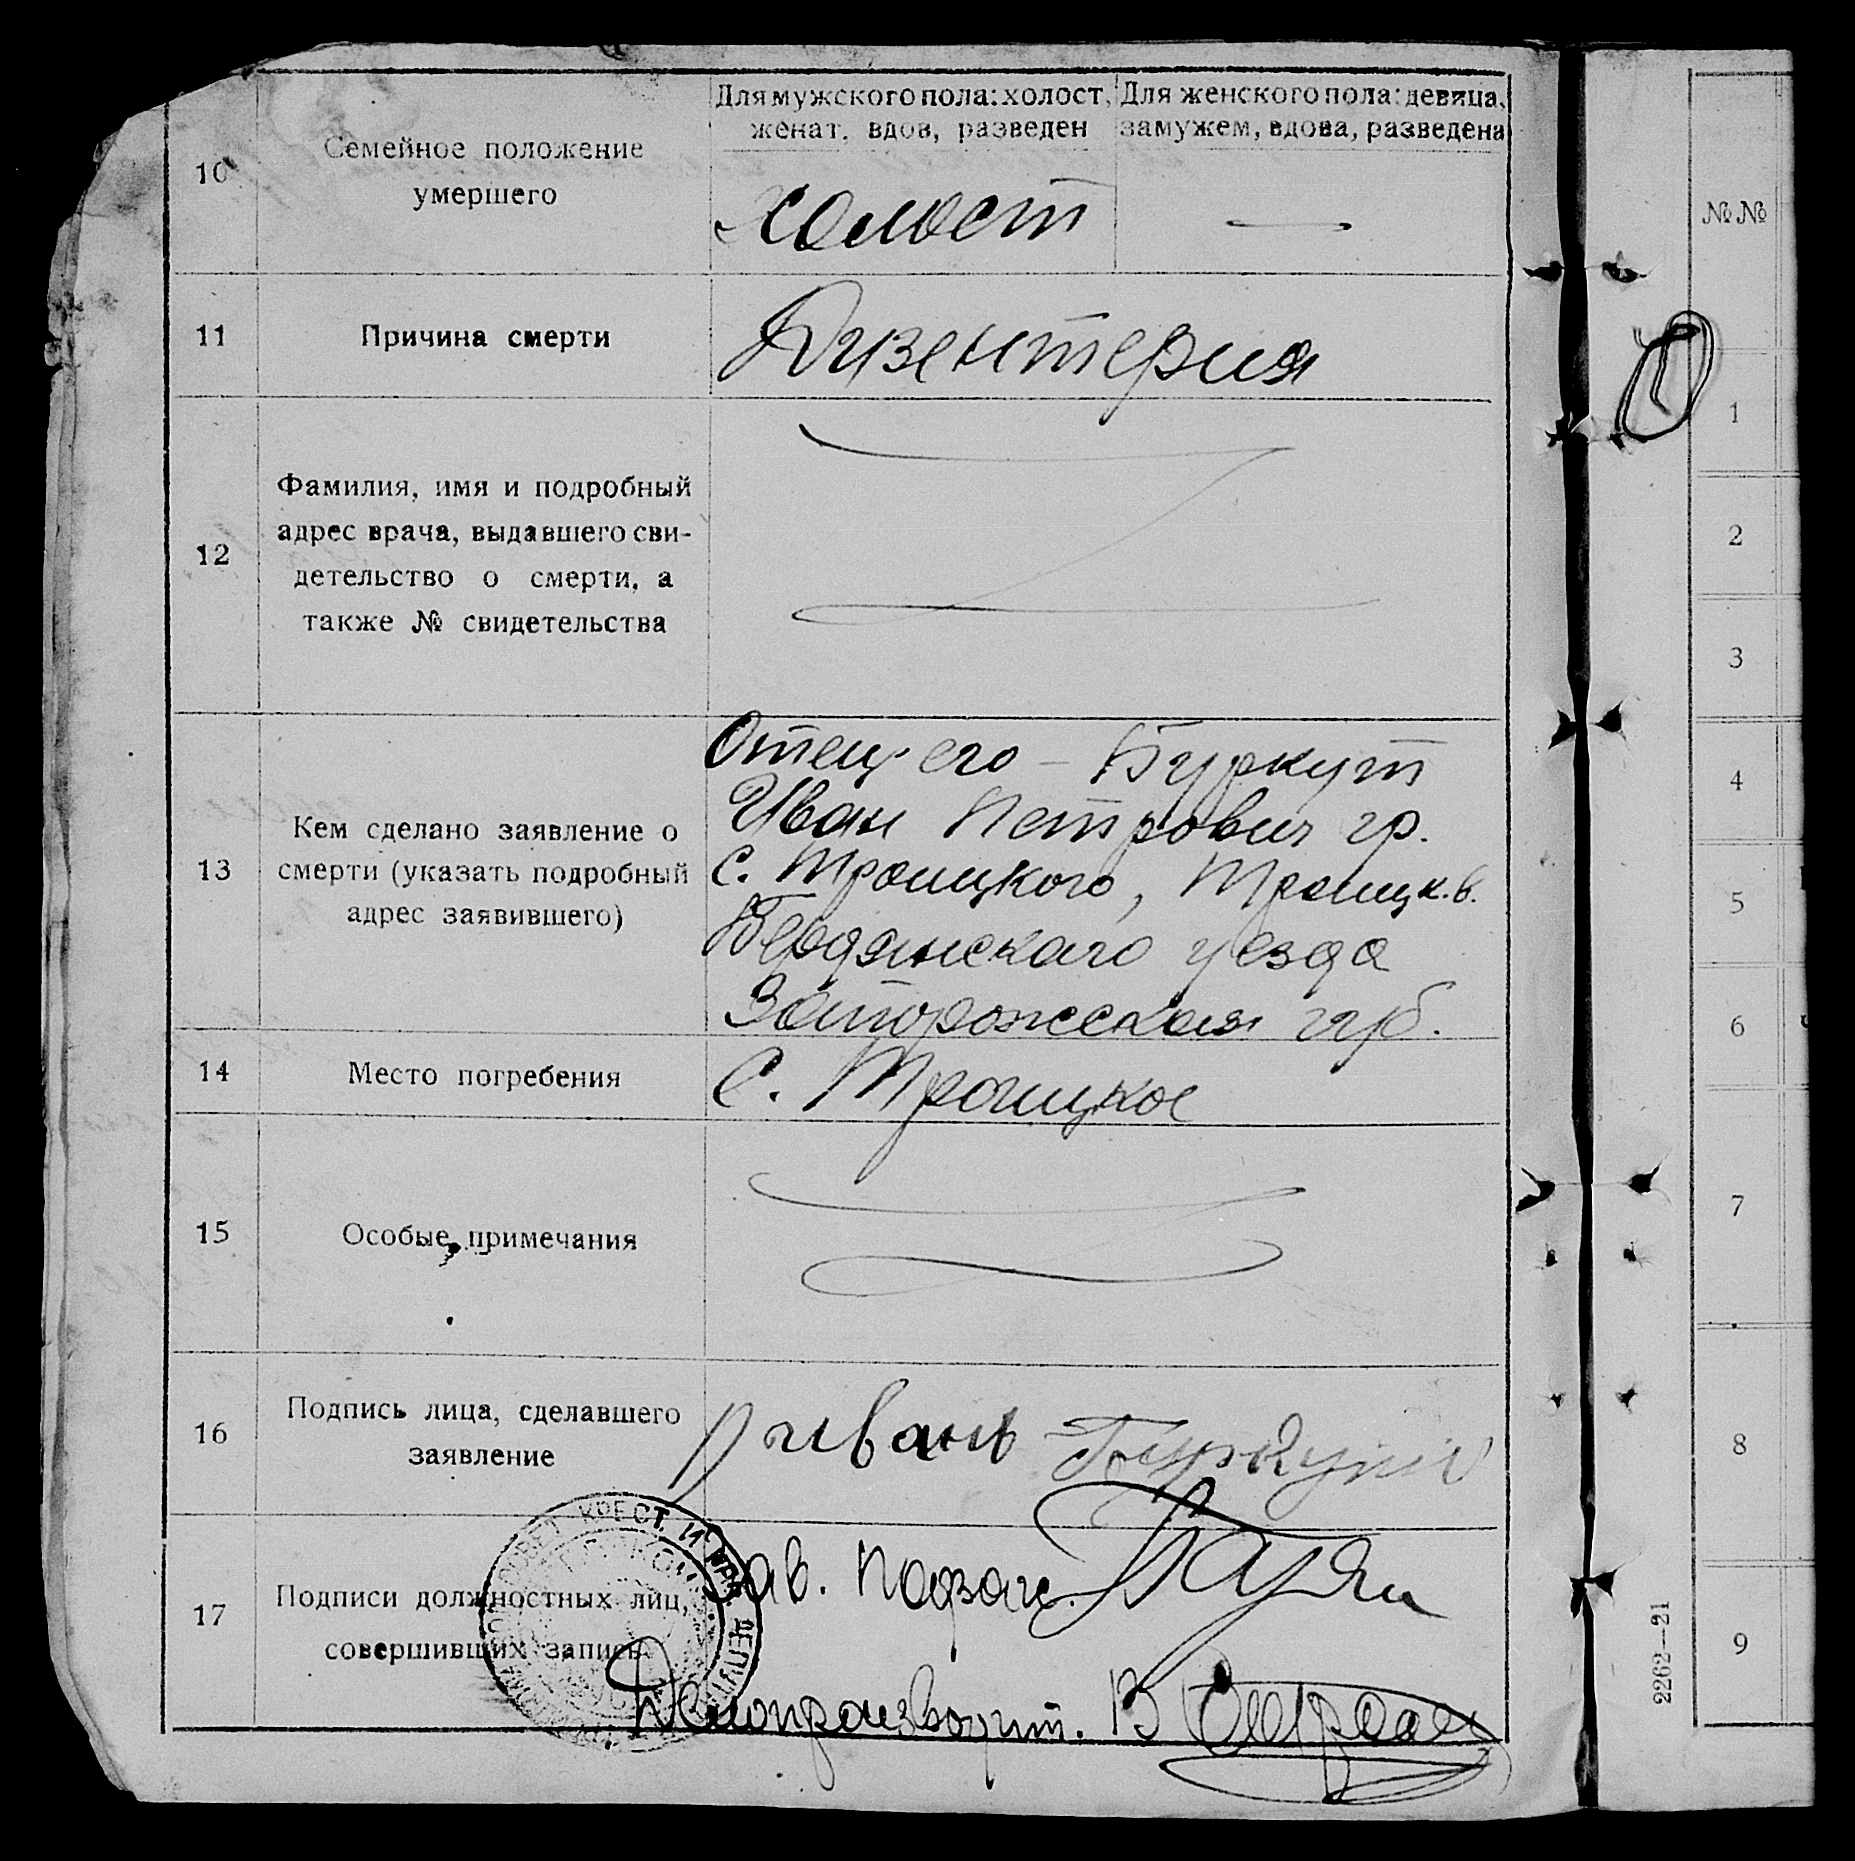 Для мужского пола: холост,
женат, вдов, разведен
Для женского пола: девица,
замужем, вдова, разведена
10
Семейное положение
умершего
холост
—
11
Причина смерти
Дизентерия
12
Фамилия, имя и подробный
адрес врача, выдавшего сви-
детельство о смерти, а
также № свидетельства
13
Кем сделано заявление о
смерти (указать подробный
адрес заявившего)
Отец его – Буркут
Иван Петрович гр.
с. Троицкого, Троицк. в.
Бердянскаго уезда
Запорожская губ.
14
Место погребения
с. Троицкое
15
Особые примечания
16
Подпись лица, сделавшего
заявление
иванъ Буркутъ
17
Подписи должностных лиц,
совершивших запись
Зав. Подзаг.
Делопроизводит. В
КРЕСТ. И
ДЕПУТ
№№
1
2
3
4
5
6
7
8
9
2262—21